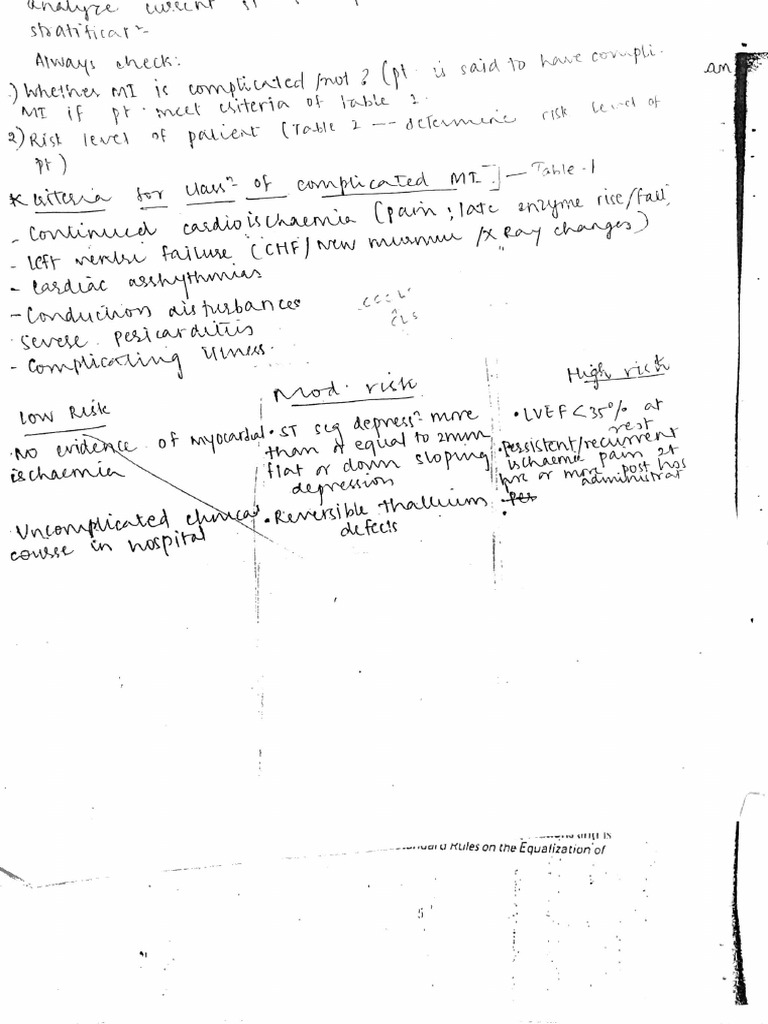 analyze current
stratificatⁿ
Always check:
1) Whether MI is complicated / not? (pt. is said to have compli.
MI if pt. meet criteria of table 1.
an
2) Risk level of patient (Table 2 -- determine risk level of
pt)
* Criteria for classⁿ of complicated MI] — Table.1
- Continued cardioischaemia (pain; late enzyme rise/fall,
- Left ventri failure (CHF/New murmur /X Ray changes)
- Cardiac arrhythmias
- Conduction disturbances
Severe pericarditis
- Complicating illness.
Low Risk
• No evidence of myocardial
ischaemia
• Uncomplicated clinical
course in hospital
Mod. risk
• ST seg depressⁿ more
than or equal to 2mm
flat or down sloping
depression
• Reversible thallium
defects
High risk
• LVEF < 35% at
rest
• Persistent/recurrent
ischaemic pain 24
hrs or more post hos
administrat
• Per
Rules on the Equalization of
5